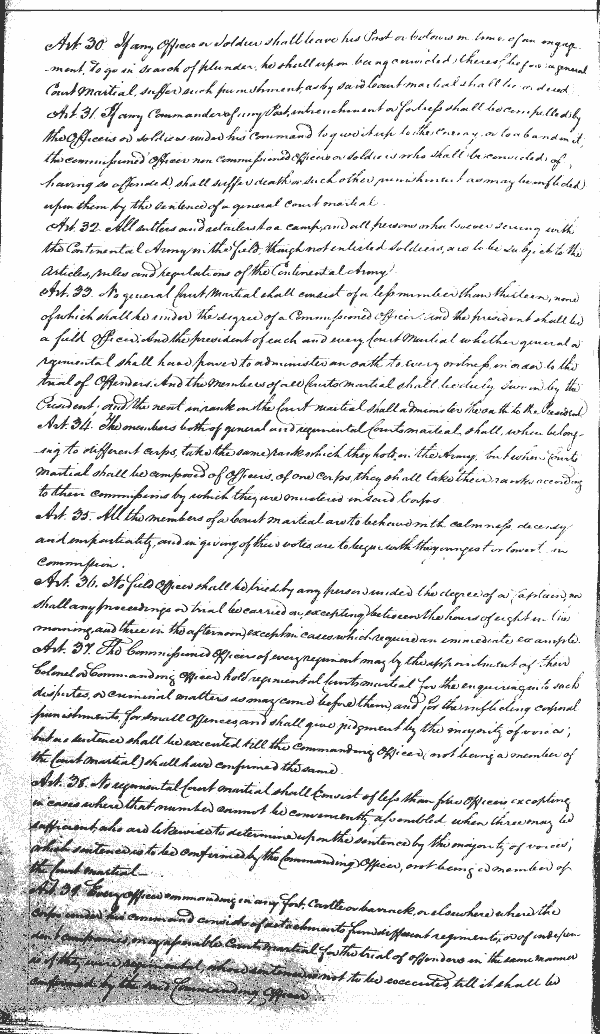 Art 30. If any Officer or Soldier shall leave his Post or Colours in time of an engage-
-ment, to go in search of plunder, he shall upon being convicted thereof before a general
Court Martial, suffer such punishment as by said Court martial shall be ordered.
Art 31. If any Commander of any Post, intrenchment or fortress shall be compelled by
the Officers or soldiers under his Command to give it up to the enemy, or to abandon it,
the commissioned Officer non commissioned Officers or soldiers who shall be convicted of
having so offended, shall suffer death or such other punishment as may be inflicted
upon them by the sentence of a general court martial.
Art 32. All sutlers and retailers to a camp, and all persons whatsoever serving with
the Continental Army in the field, though not enlisted Soldiers, are to be subject to the
articles, rules and regulations of the Continental Army.
Art. 33. No general Court Martial shall consist of a less number than thirteen, none
of which shall be under the degree of a Commissioned Officer: and the president shall be
a field Officer: And the president of each and every Court Martial whether general or
regimental shall have power to administer an oath to every witness, in order to the
trial of Offenders. And the Members of all Courts martial shall be duly sworn by the
President; and the next in rank on the Court martial shall administer the oath to the President
Art. 34. The members both of general and regimental Courts martial, shall, when belong-
-ing to different corps, take the same rank which they hold in the Army, but when Courts
martial shall be composed of Officers, of one corps, they shall take their ranks according
to their commissions by which they are mustered in said Corps.
Art. 35. All the members of a Court martial are to behave with calmness, decency
and impartiality, and in giving of their votes are to begin with the youngest or lowest in
commission.
Art. 36. No field Officer shall be tried by any person under the degree of a Captain, nor
shall any proceedings or trial be carried on, excepting between the hours of eight in the
morning and three in the afternoon, except in cases which require an immediate example.
Art. 37. The Commissioned Officers of every regiment may by the appointment of their
Colonel or Commanding Officer hold regimental Courts martial for the enquiring into such
disputes, or criminal matters as may come before them, and for the inflicting corporal
punishments, for small Offences, and shall give judgment by the majority of voices;
but no sentence shall be executed till the Commanding Officer, (not being a member of
the Court Martial) shall have confirmed the same
Art. 38. No regimental Court martial shall consist of less than five Officers excepting
in cases where that number cannot be conveniently assembled when three may be
sufficient, who are likewise to determine upon the sentence by the majority of voices;
which sentence is to be confirmed by the Commanding Officer, not being a member of
the Court martial—
Art. 39. Every Officer commanding in any fort, Castle or barrack, or elsewhere where the
corps under his command consists of detachments from different regiments, or of indepen-
-dent companies, may assemble Courts Martial for the trial of offenders in the same manner
as if they were regimental, whose sentence is not to be executed, till it shall be
confirmed by the said Commanding Officer.